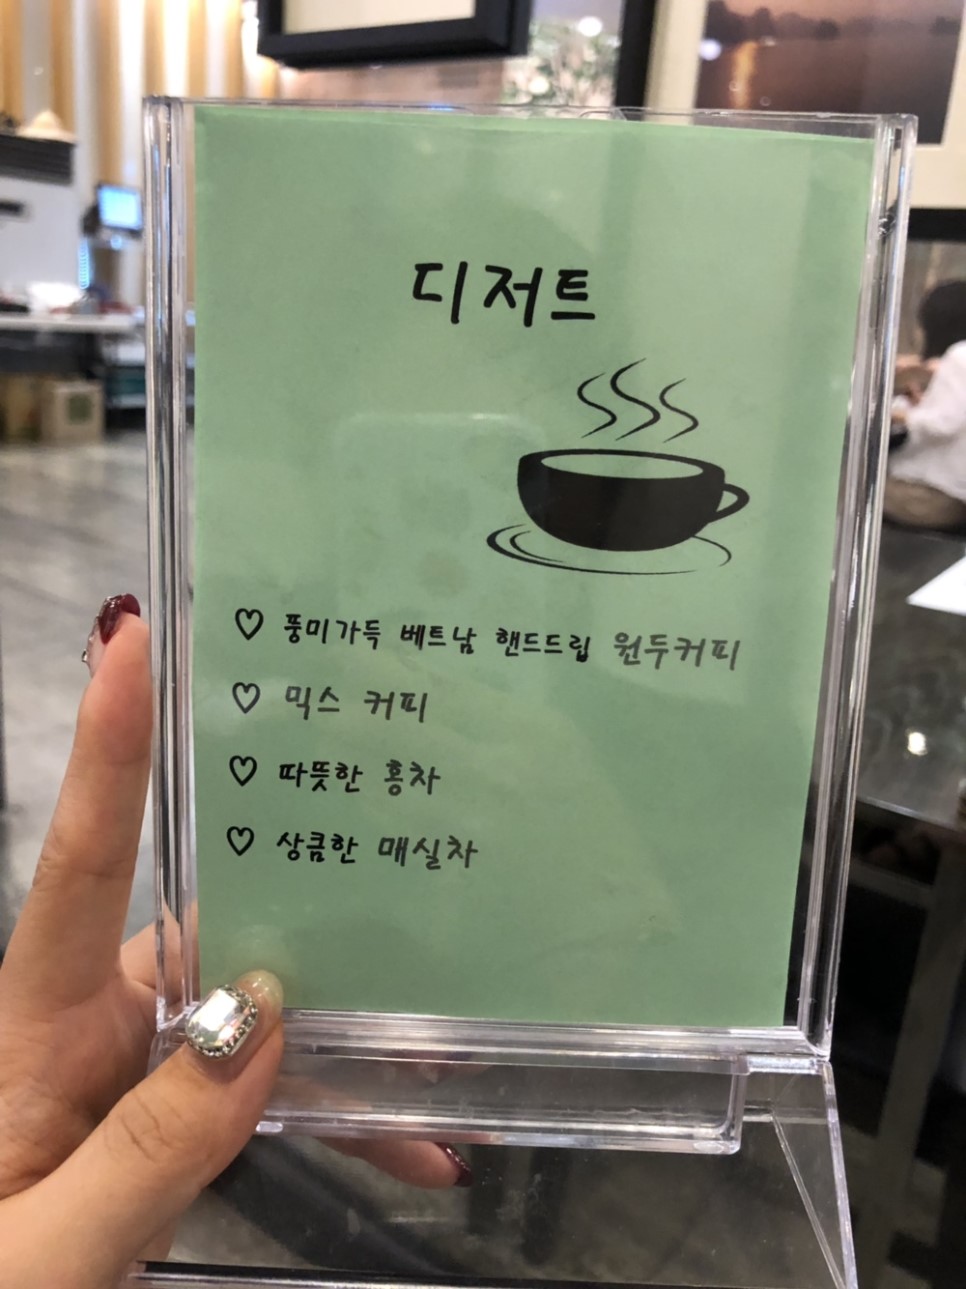 디저트
♡ 풍미가득 베트남 핸드드립 원두커피
♡ 믹스 커피
♡ 따뜻한 홍차
♡ 상큼한 매실차